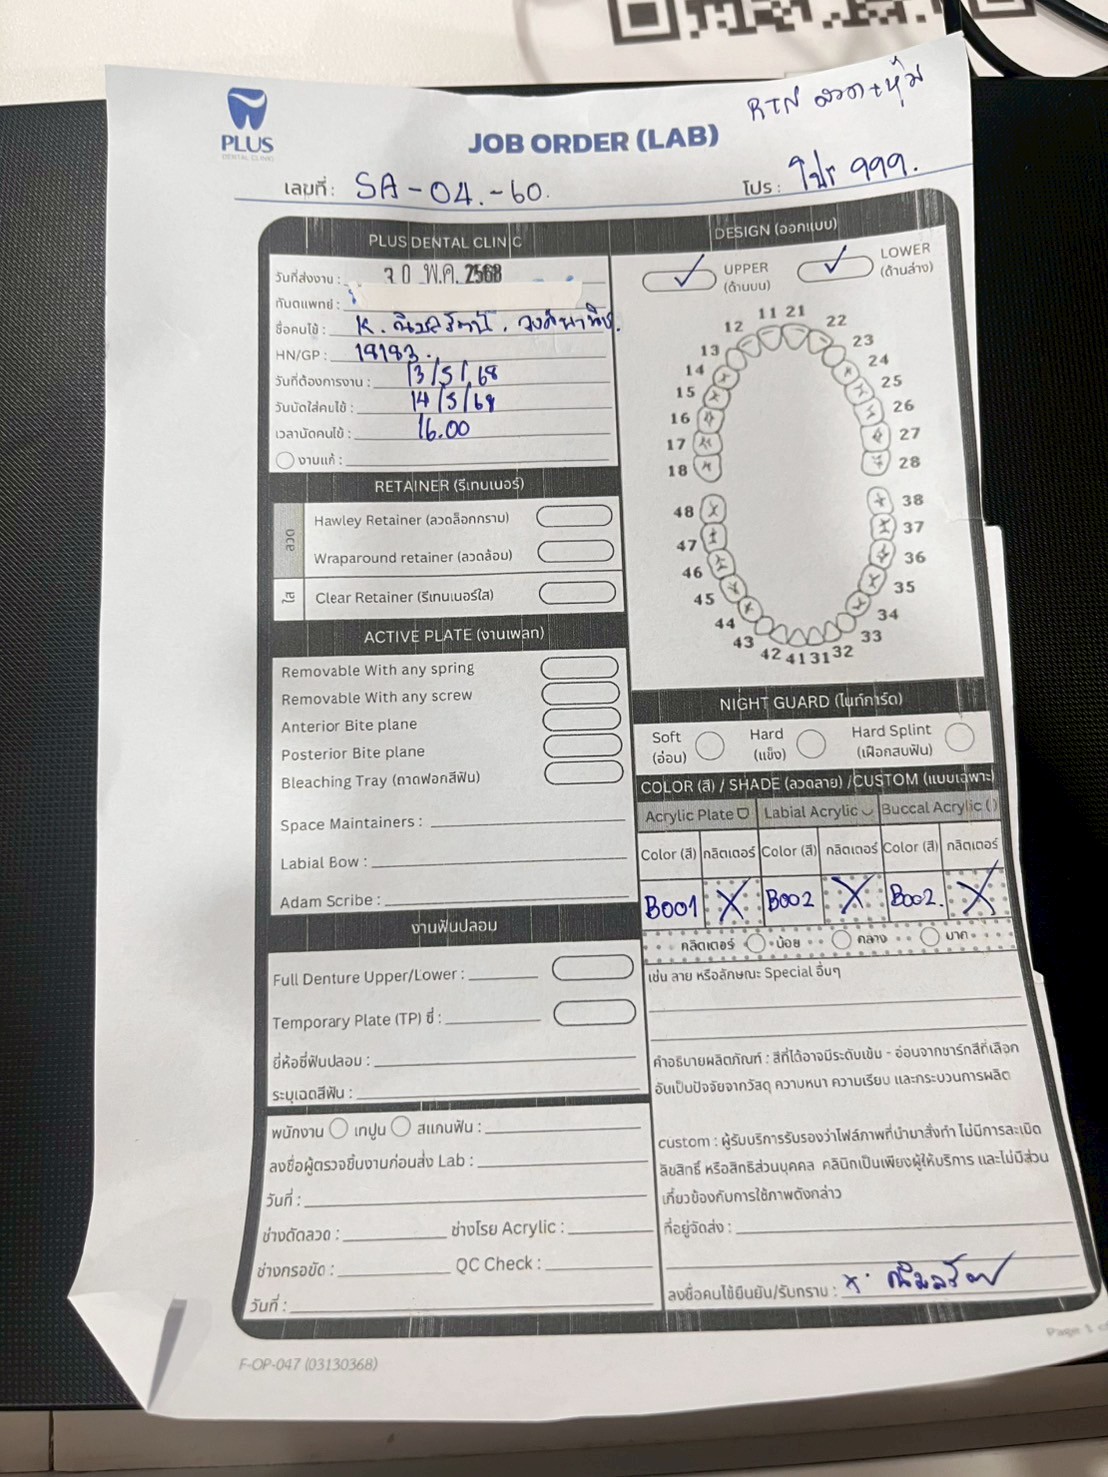 RTN ลวด+หุ้ม
PLUS
DENTAL CLINIC
JOB ORDER (LAB)
เลขที่ : SA-04.-60.
โปร : โปร 999.
PLUS DENTAL CLINIC
วันที่ส่งงาน : 30 พ.ค. 2568
ทันตแพทย์ :
ชื่อคนไข้ : K.
HN/GP : 18183.
วันที่ต้องการงาน : 13/5/68
วันนัดใส่คนไข้ : 14/5/68
เวลานัดคนไข้ : 16.00
งานแก้ :
RETAINER (รีเทนเนอร์)
ลวด
Hawley Retainer (ลวดล็อกกราม)
Wraparound retainer (ลวดล้อม)
ใส
Clear Retainer (รีเทนเนอร์ใส)
ACTIVE PLATE (งานเพลท)
Removable With any spring
Removable With any screw
Anterior Bite plane
Posterior Bite plane
Bleaching Tray (ถาดฟอกสีฟัน)
Space Maintainers :
Labial Bow :
Adam Scribe :
งานฟันปลอม
Full Denture Upper/Lower :
Temporary Plate (TP) ซี่ :
ยี่ห้อซี่ฟันปลอม :
ระบุเฉดสีฟัน :
พนักงาน เทปูน สแกนฟัน :
ลงชื่อผู้ตรวจชิ้นงานก่อนส่ง Lab :
วันที่ :
ช่างดัดลวด : ช่างโรย Acrylic :
ช่างกรอขัด : QC Check :
วันที่ :
DESIGN (ออกแบบ)
UPPER
(ด้านบน)
LOWER
(ด้านล่าง)
11 21
12 22
13 23
14 24
15 25
16 26
17 27
18 28
48 38
47 37
46 36
45 35
44 34
43 33
42 41 31 32
NIGHT GUARD (ไนท์การ์ด)
Soft
(อ่อน)
Hard
(แข็ง)
Hard Splint
(เฝือกสบฟัน)
COLOR (สี) / SHADE (ลวดลาย) /CUSTOM (แบบเฉพาะ)
Acrylic Plate Labial Acrylic Buccal Acrylic
Color (สี) กลิตเตอร์ Color (สี) กลิตเตอร์ Color (สี) กลิตเตอร์
B001 X B002 X B002. X
กลิตเตอร์ น้อย กลาง มาก
เช่น ลาย หรือลักษณะ Special อื่นๆ
คำอธิบายผลิตภัณฑ์ : สีที่ได้อาจมีระดับเข้ม - อ่อนจากชาร์ทสีที่เลือก
อันเป็นปัจจัยจากวัสดุ ความหนา ความเรียบ และกระบวนการผลิต
custom : ผู้รับบริการรับรองว่าไฟล์ภาพที่นำมาสั่งทำ ไม่มีการละเมิด
ลิขสิทธิ์ หรือสิทธิส่วนบุคคล คลินิกเป็นเพียงผู้ให้บริการ และไม่มีส่วน
เกี่ยวข้องกับการใช้ภาพดังกล่าว
ที่อยู่จัดส่ง :
ลงชื่อคนไข้ยืนยัน/รับทราบ : x
F-OP-047 (03130368)
Page 1